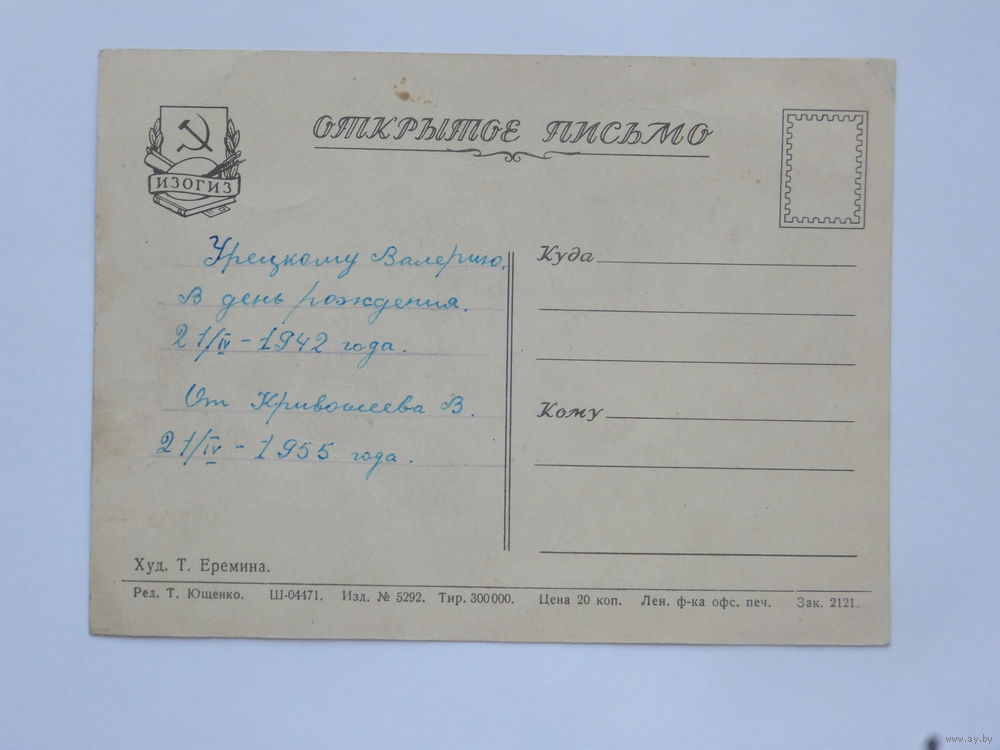 ОТКРЫТОЕ ПИСЬМО
ИЗОГИЗ
Урецкому Валерию.
В день рождения.
21/IV – 1942 года.
От Кривошеева В.
21/IV – 1955 года.
Куда
Кому
Худ. Т. Еремина.
Ред. Т. Ющенко. Ш-04471. Изд. № 5292. Тир. 300000. Цена 20 коп. Лен. ф-ка офс. печ. Зак. 2121.
www.ay.by